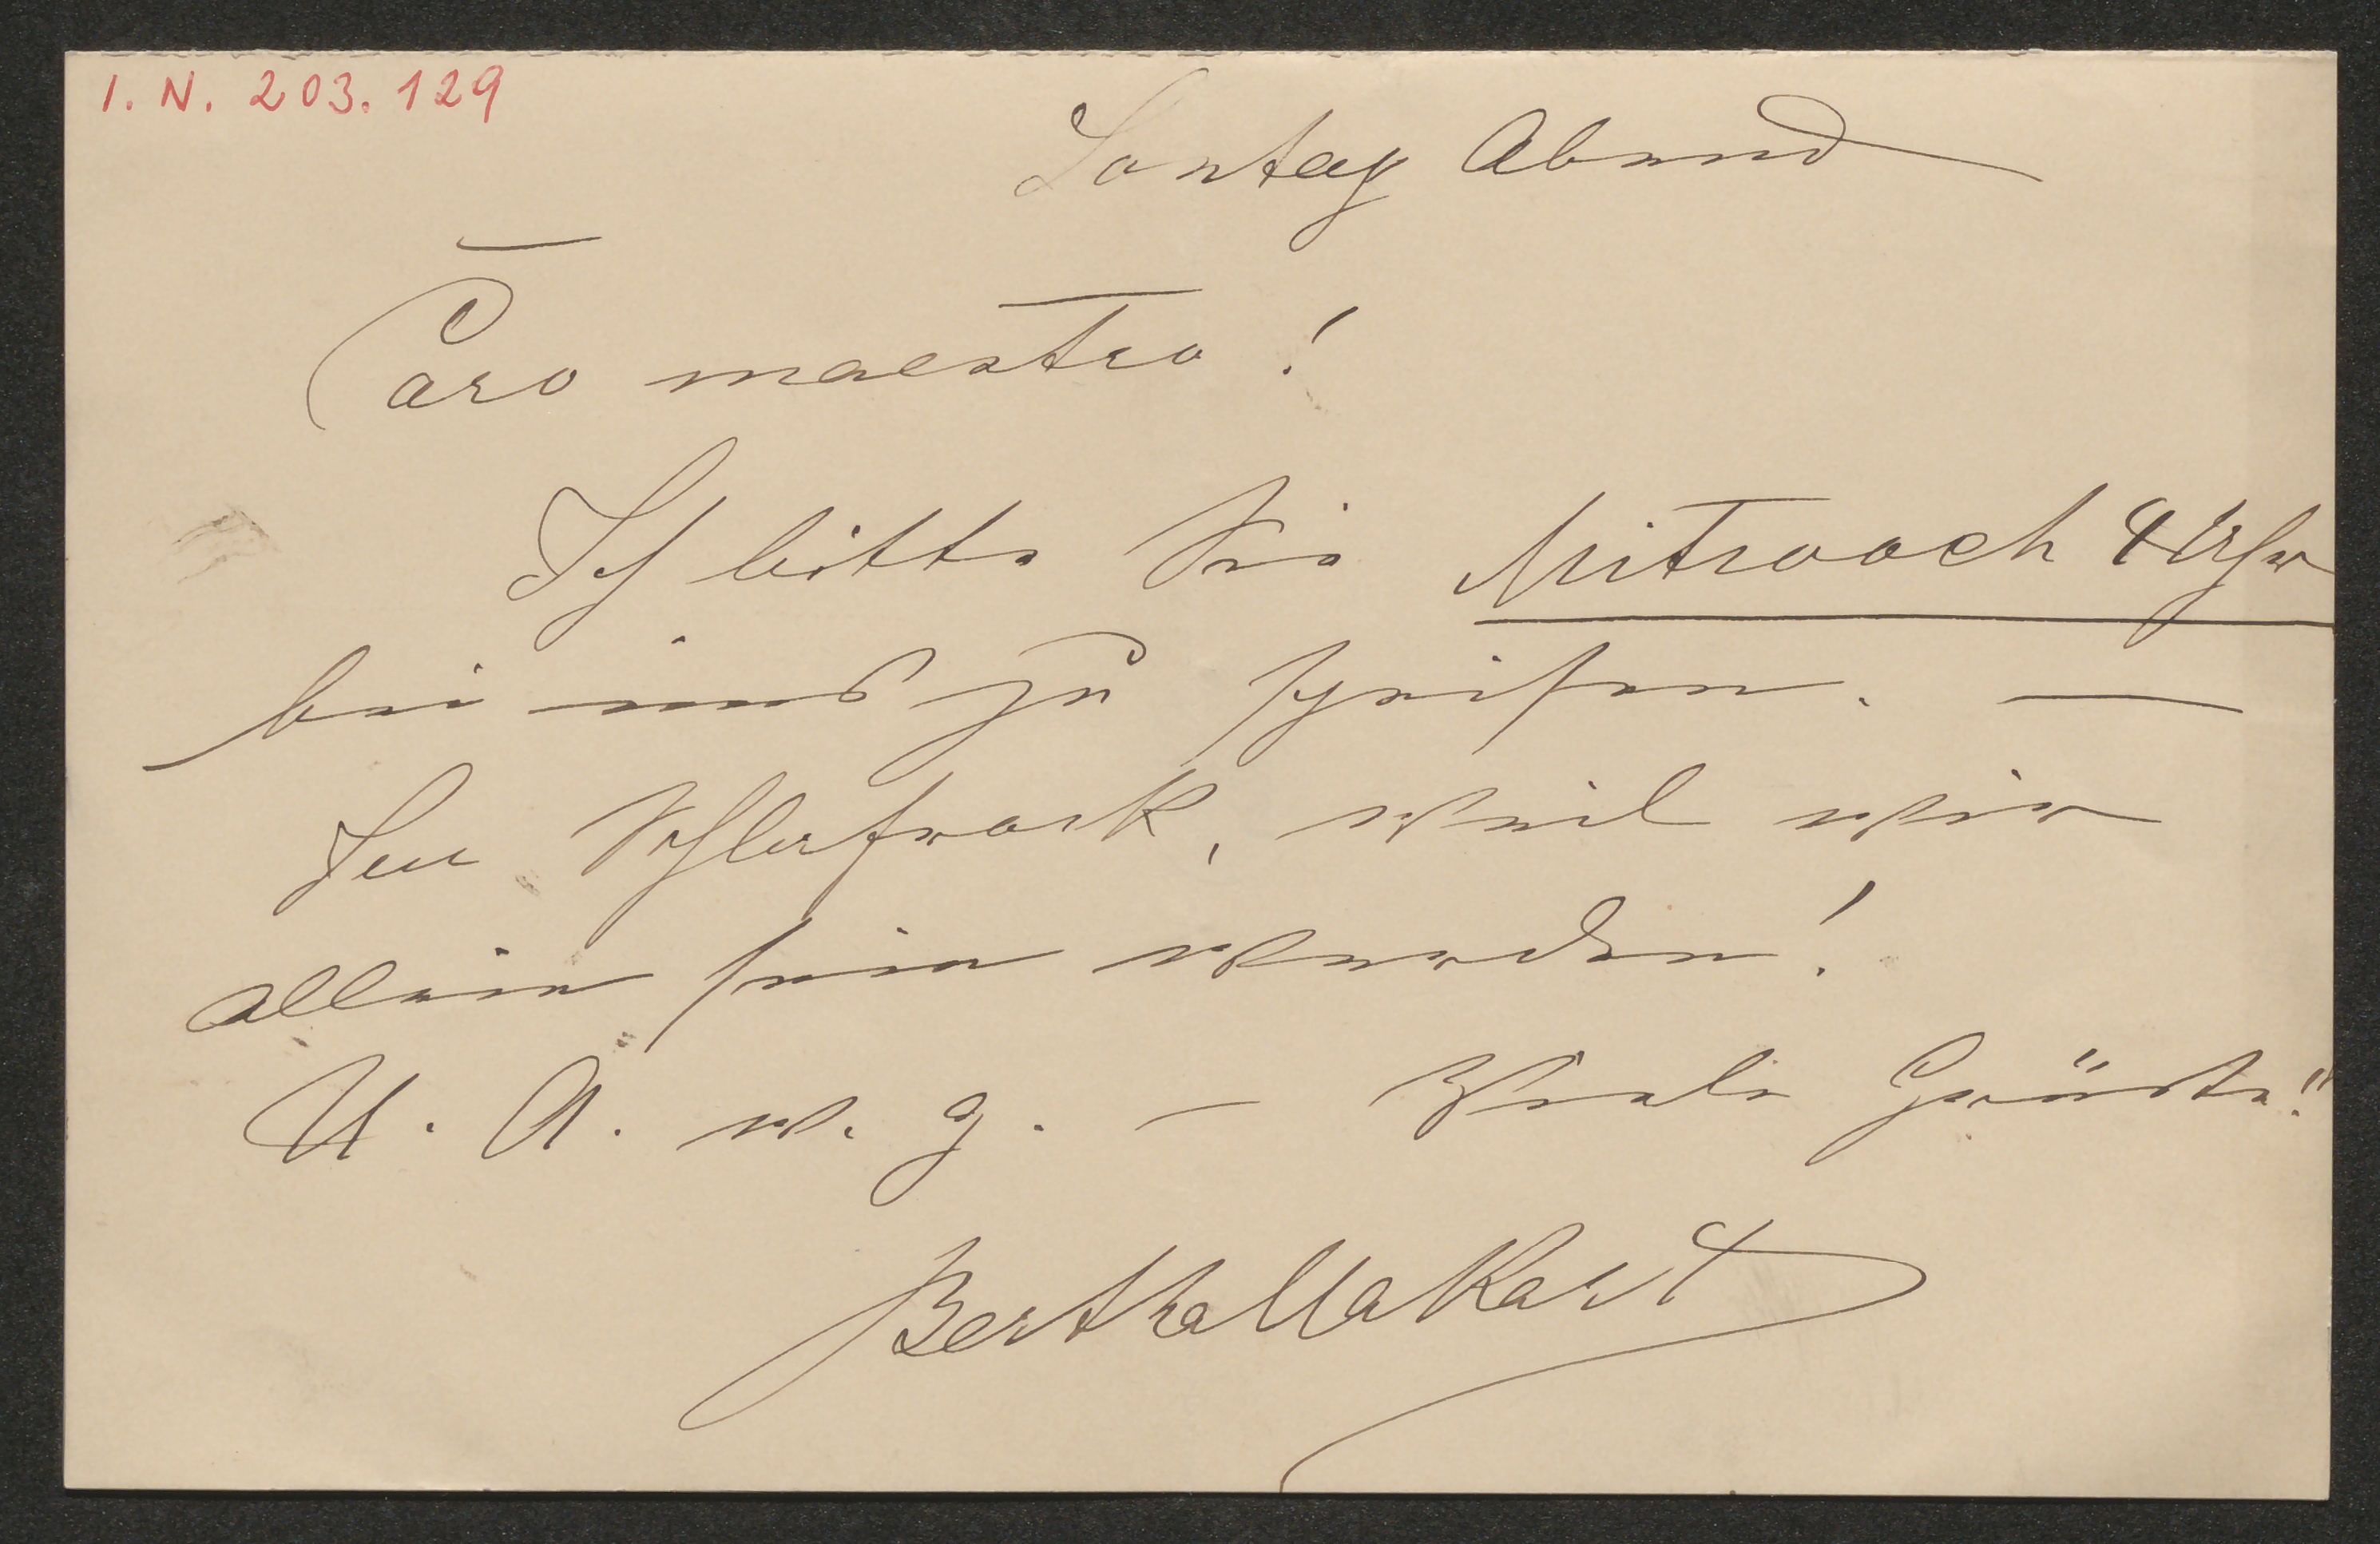 I. N. 203.129
Sontag Abend
Caro maestro!
Ich bitte Sie Mitwoch 4 Uhr
bei uns zu speisen. —
Im Schlafrock, weil wir
allein sein werden!
U. A. w. g. – Viele Grüße!!
Bertha Makart